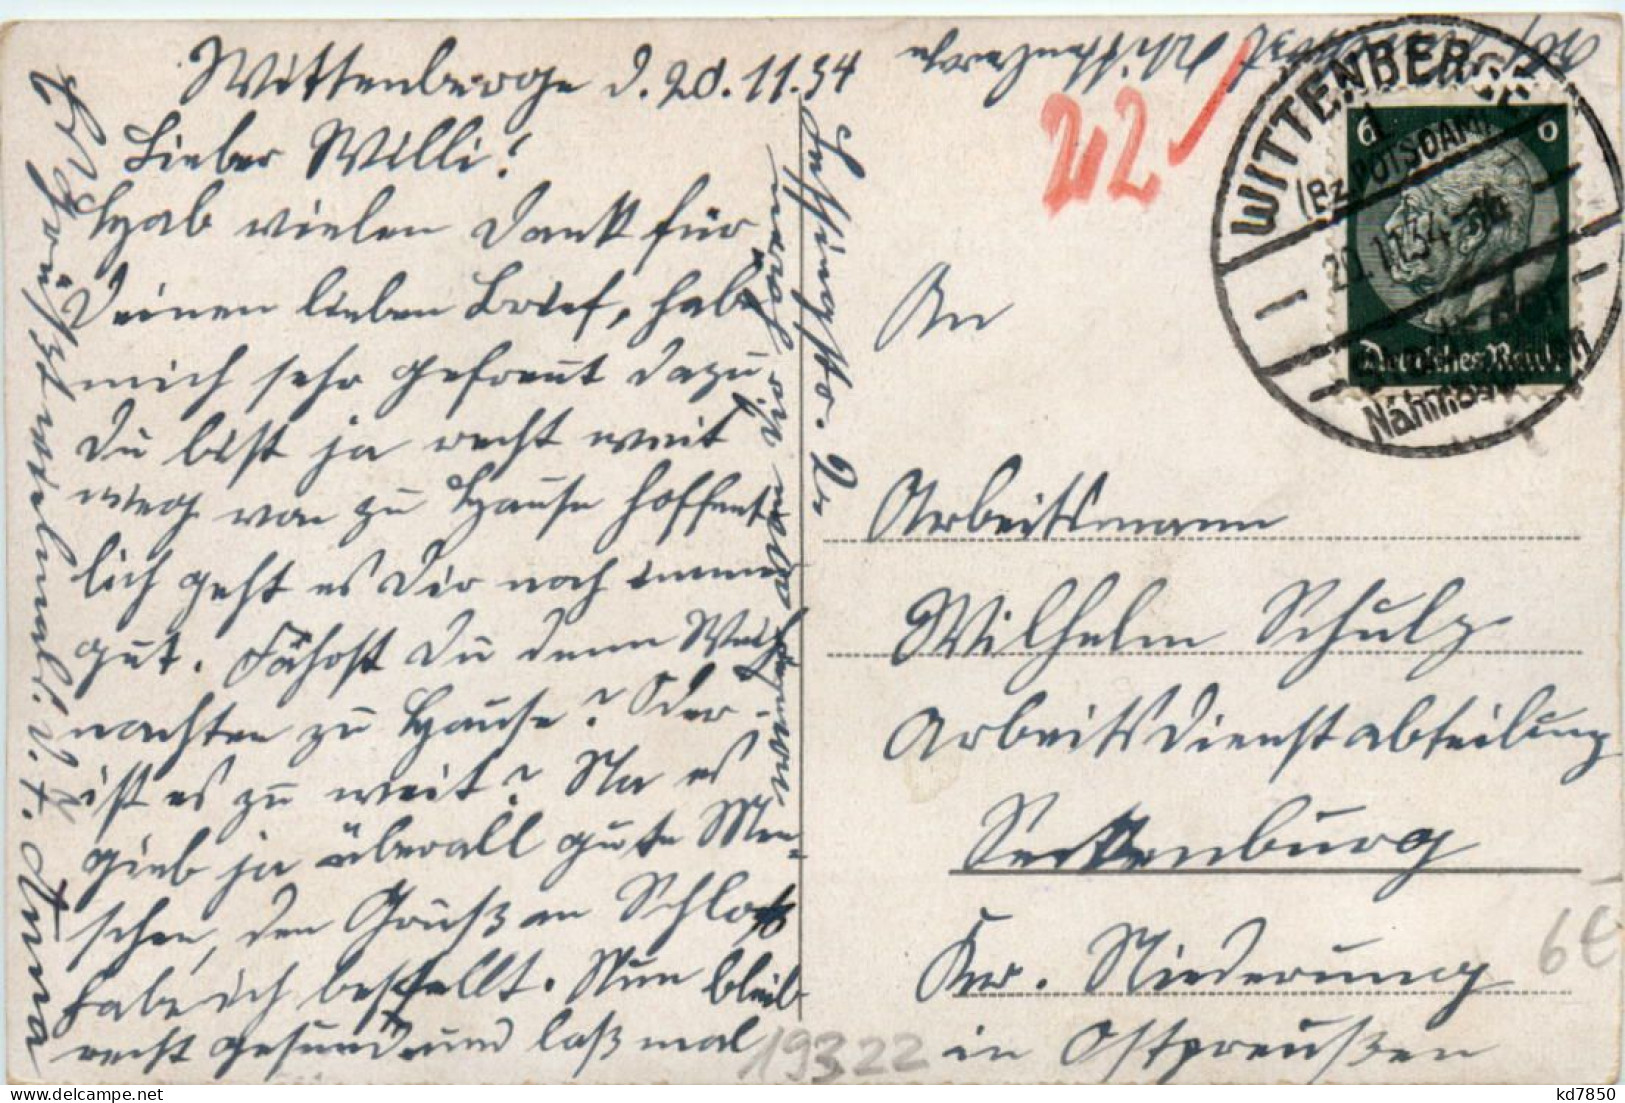 Wittenberge d. 20.11.34
Lieber Willi!
Hab vielen Dank für
Deinen lieben Brief, habe
mich sehr gefreut dazu
Du bist ja recht weit
weg von zu Hause hoffent-
lich geht es Dir noch immer
gut. Fährst Du denn Weih-
nachten zu Hause? Oder
ist es zu weit? Na es
gieb ja überall gute Men-
schen, den Gruß an Schloß
habe ich bestellt. Nun bleib
recht gesund und laß mal
wieder von Dir
Es grüßt vielmals D. T. Anna
Wittenberge
22
WITTENBERGE
1
(Bz. POTSDAM)
20.11.34
Stadt der
Nähmaschinen
6 6
Deutsches Reich
An
Arbeitsmann
Wilhelm Schulz
Arbeitsdienstabteilung
Seckenburg
Kr. Niederung
in Ostpreußen
6€
19322
kd7850